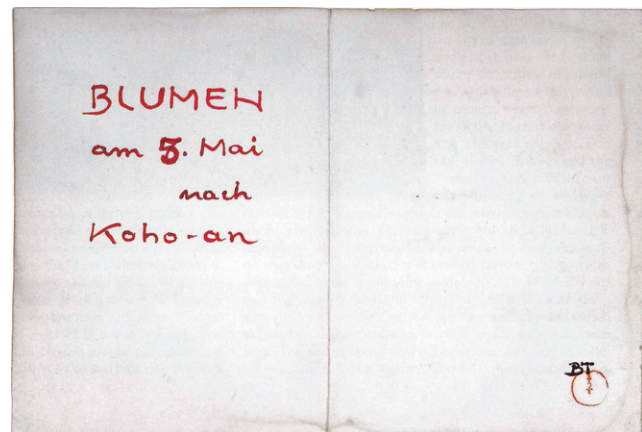 BLUMEN
am 5. Mai
nach
Koho-an
BT